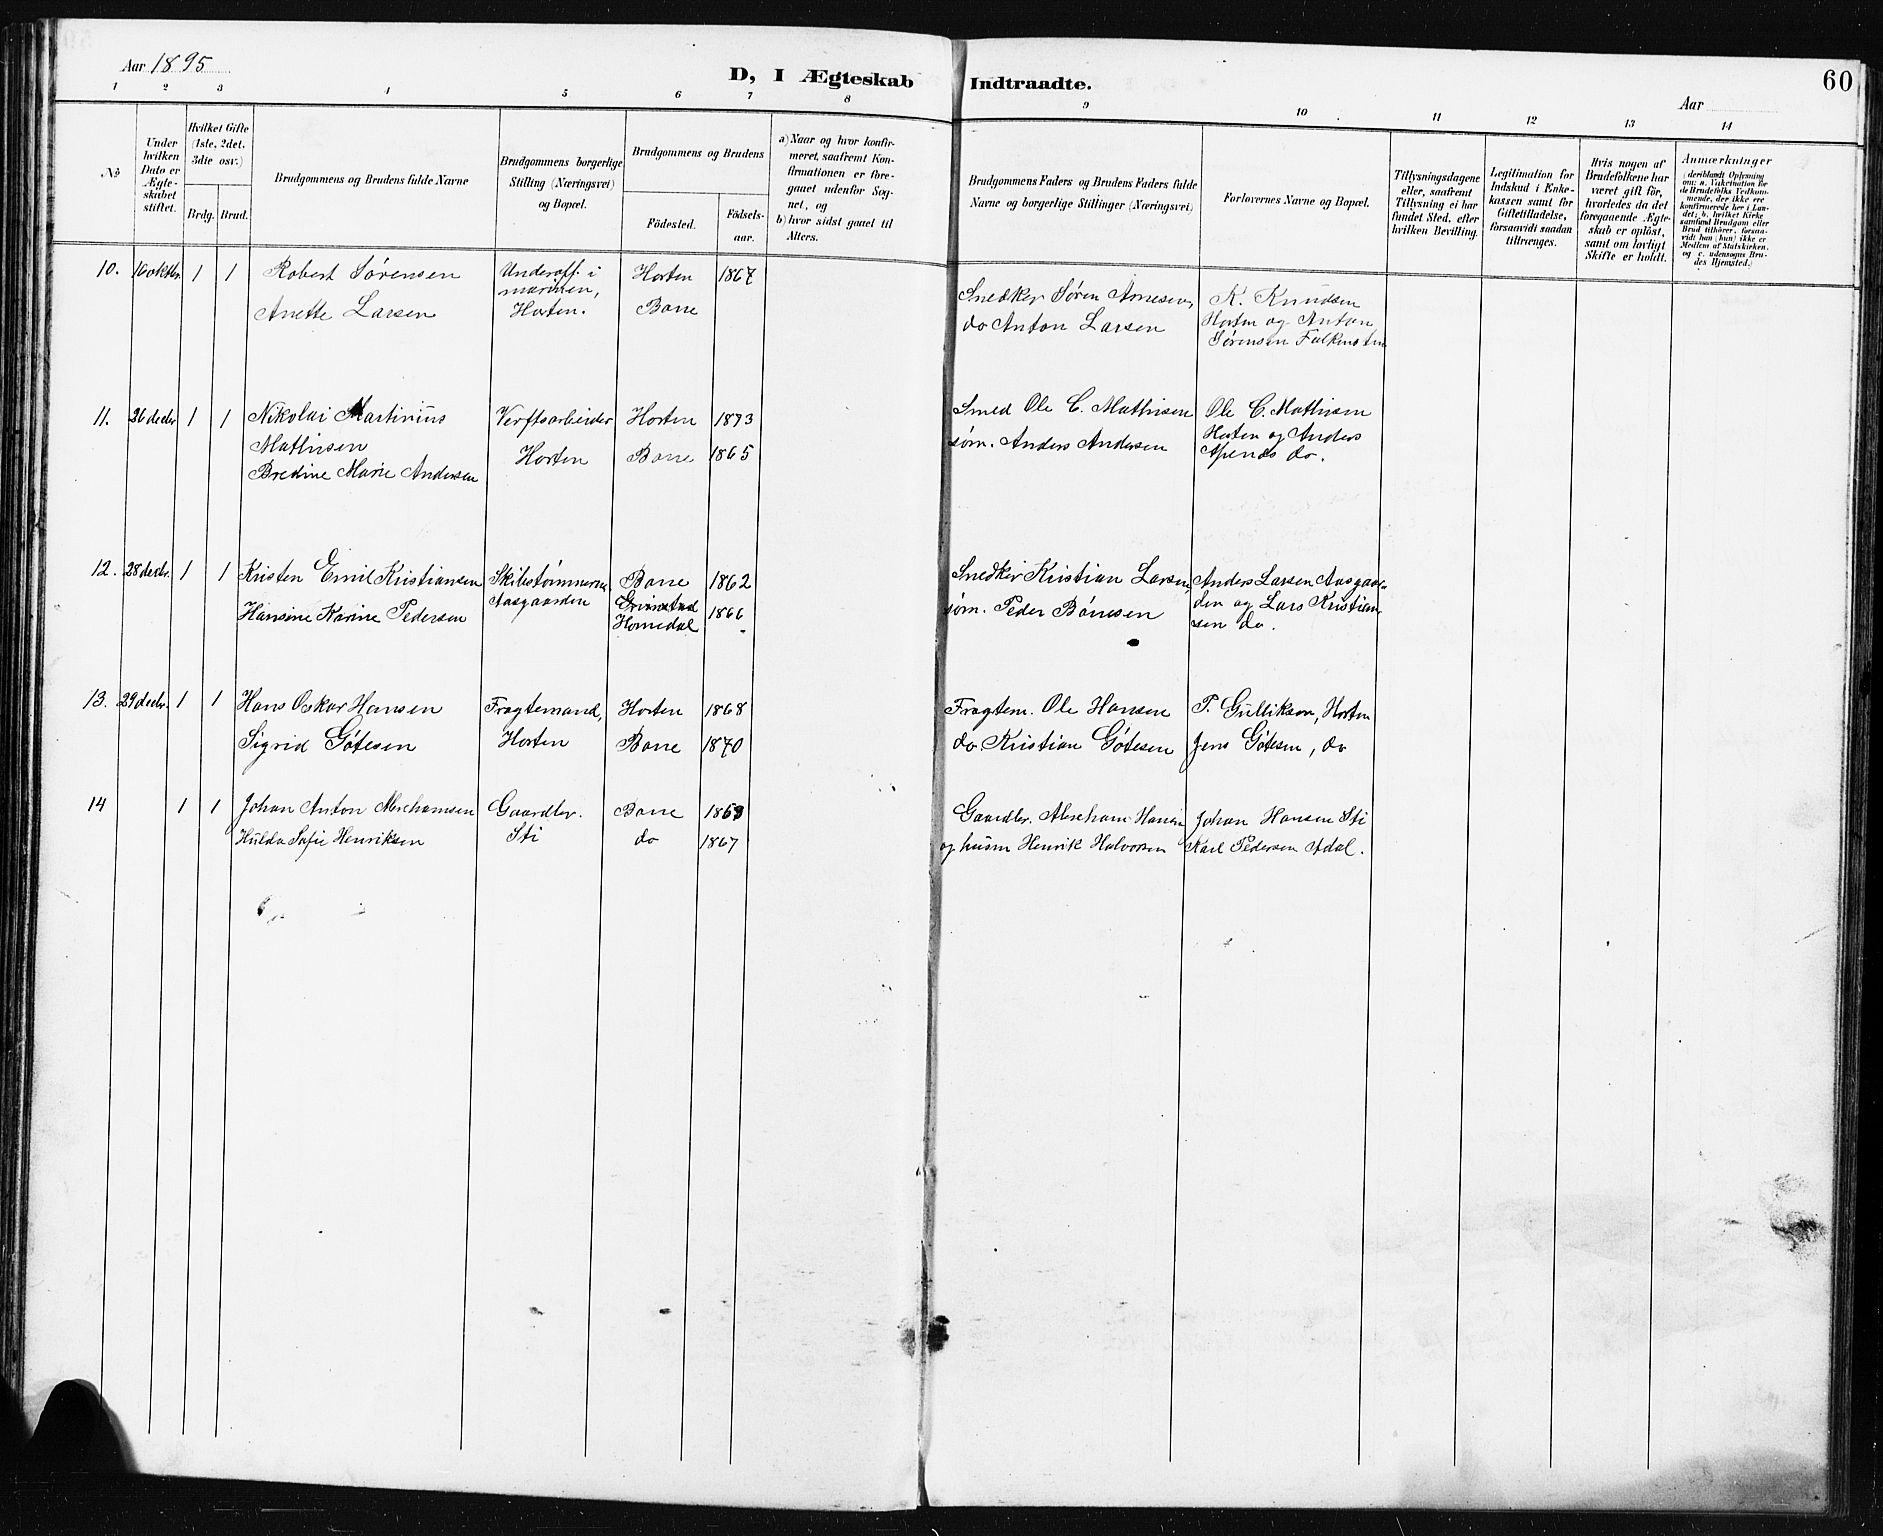 Aar 1895
D, I Ægteskab Indtraadte.
Aar
60
1 2 3 4 5 6 7 8 9 10 11 12 13 14
No
Under hvilken Dato er Ægteskabet stiftet.
Hvilket Gifte (1ste, 2det, 3die osv.)
Brdg. Brud.
Brudgommens og Brudens fulde Navne
Brudgommens borgerlige Stilling (Næringsvei) og Bopæl.
Brudgommens og Brudens
Fødested.
Fødsels-aar.
a) Naar og hvor konfirmeret, saafremt Konfirmationen er foregaaet udenfor Sognet, og
b) hvor sidst gaaet til Alters.
Brudgommens Faders og Brudens Faders fulde Navne og borgerlige Stillinger (Næringsvei)
Forlovernes Navne og Bopæl.
Tillysningsdagene eller, saafremt Tillysning ei har fundet Sted, efter hvilken Bevilling.
Legitimation for Indskud i Enkekassen samt for Giftetilladelse, forsaavidt saadan tiltrænges.
Hvis nogen af Brudefolkene har været gift før, hvorledes da det foregaaende Ægteskab er opløst, samt om lovligt Skifte er holdt.
Anmærkninger (deriblandt Oplysning om: a. Vakcination for de Brudefolks Vedkommende, der ikke ere konfirmerede her i Landet; b. hvilket Kirkesamfund Brudgom eller Brud tilhører, forsaavidt han (hun) ikke er Medlem af Statskirken, og c. udensogns Brudes Hjemsted.)
10. 16 oktbr. 1 1 Robert Sørensen Underoff. i Horten 1867 Snedker Søren Arnesen, K. Knudsen
marinen,
Anette Larsen Horten. Borre do Anton Larsen Horten og Anton
Sørensen Falkensten
11. 26 decbr 1 1 Nikolai Martinius Verftsarbeider Horten 1873 Smed Ole C. Mathisen Ole C. Mathisen
Mathisen Horten Borre 1865 søm. Anders Andersen Horten og Anders
Bredine Marie Andersen Apenæs do.
12. 28 decbr. 1 1 Kristen Emil Kristiansen Skibstømmerm. Borre 1862 Snedker Kristian Larsen, Anders Larsen Aasgaar-
Hansine Karine Pedersen Aasgaarden Grimstad 1866 søm. Peder Bönesen den og Lars Kristian-
Homedal sen do.
13. 29 decbr. 1 1 Hans Oskar Hansen Fragtemand, Horten 1868 Fragtem. Ole Hansen P. Gullikson, Horten
Sigrid Götesen Horten Borre 1870 do. Kristian Götesen Jens Götesen, do
14 1 1 Johan Anton Abrahamsen Gaardbr. Borre Gaardbr. Abraham Hansen Johan Hansen Sti
Hulda Sofie Henriksen Sti do 1867 og husm Henrik Halvorsen Karl Pedersen Adal.